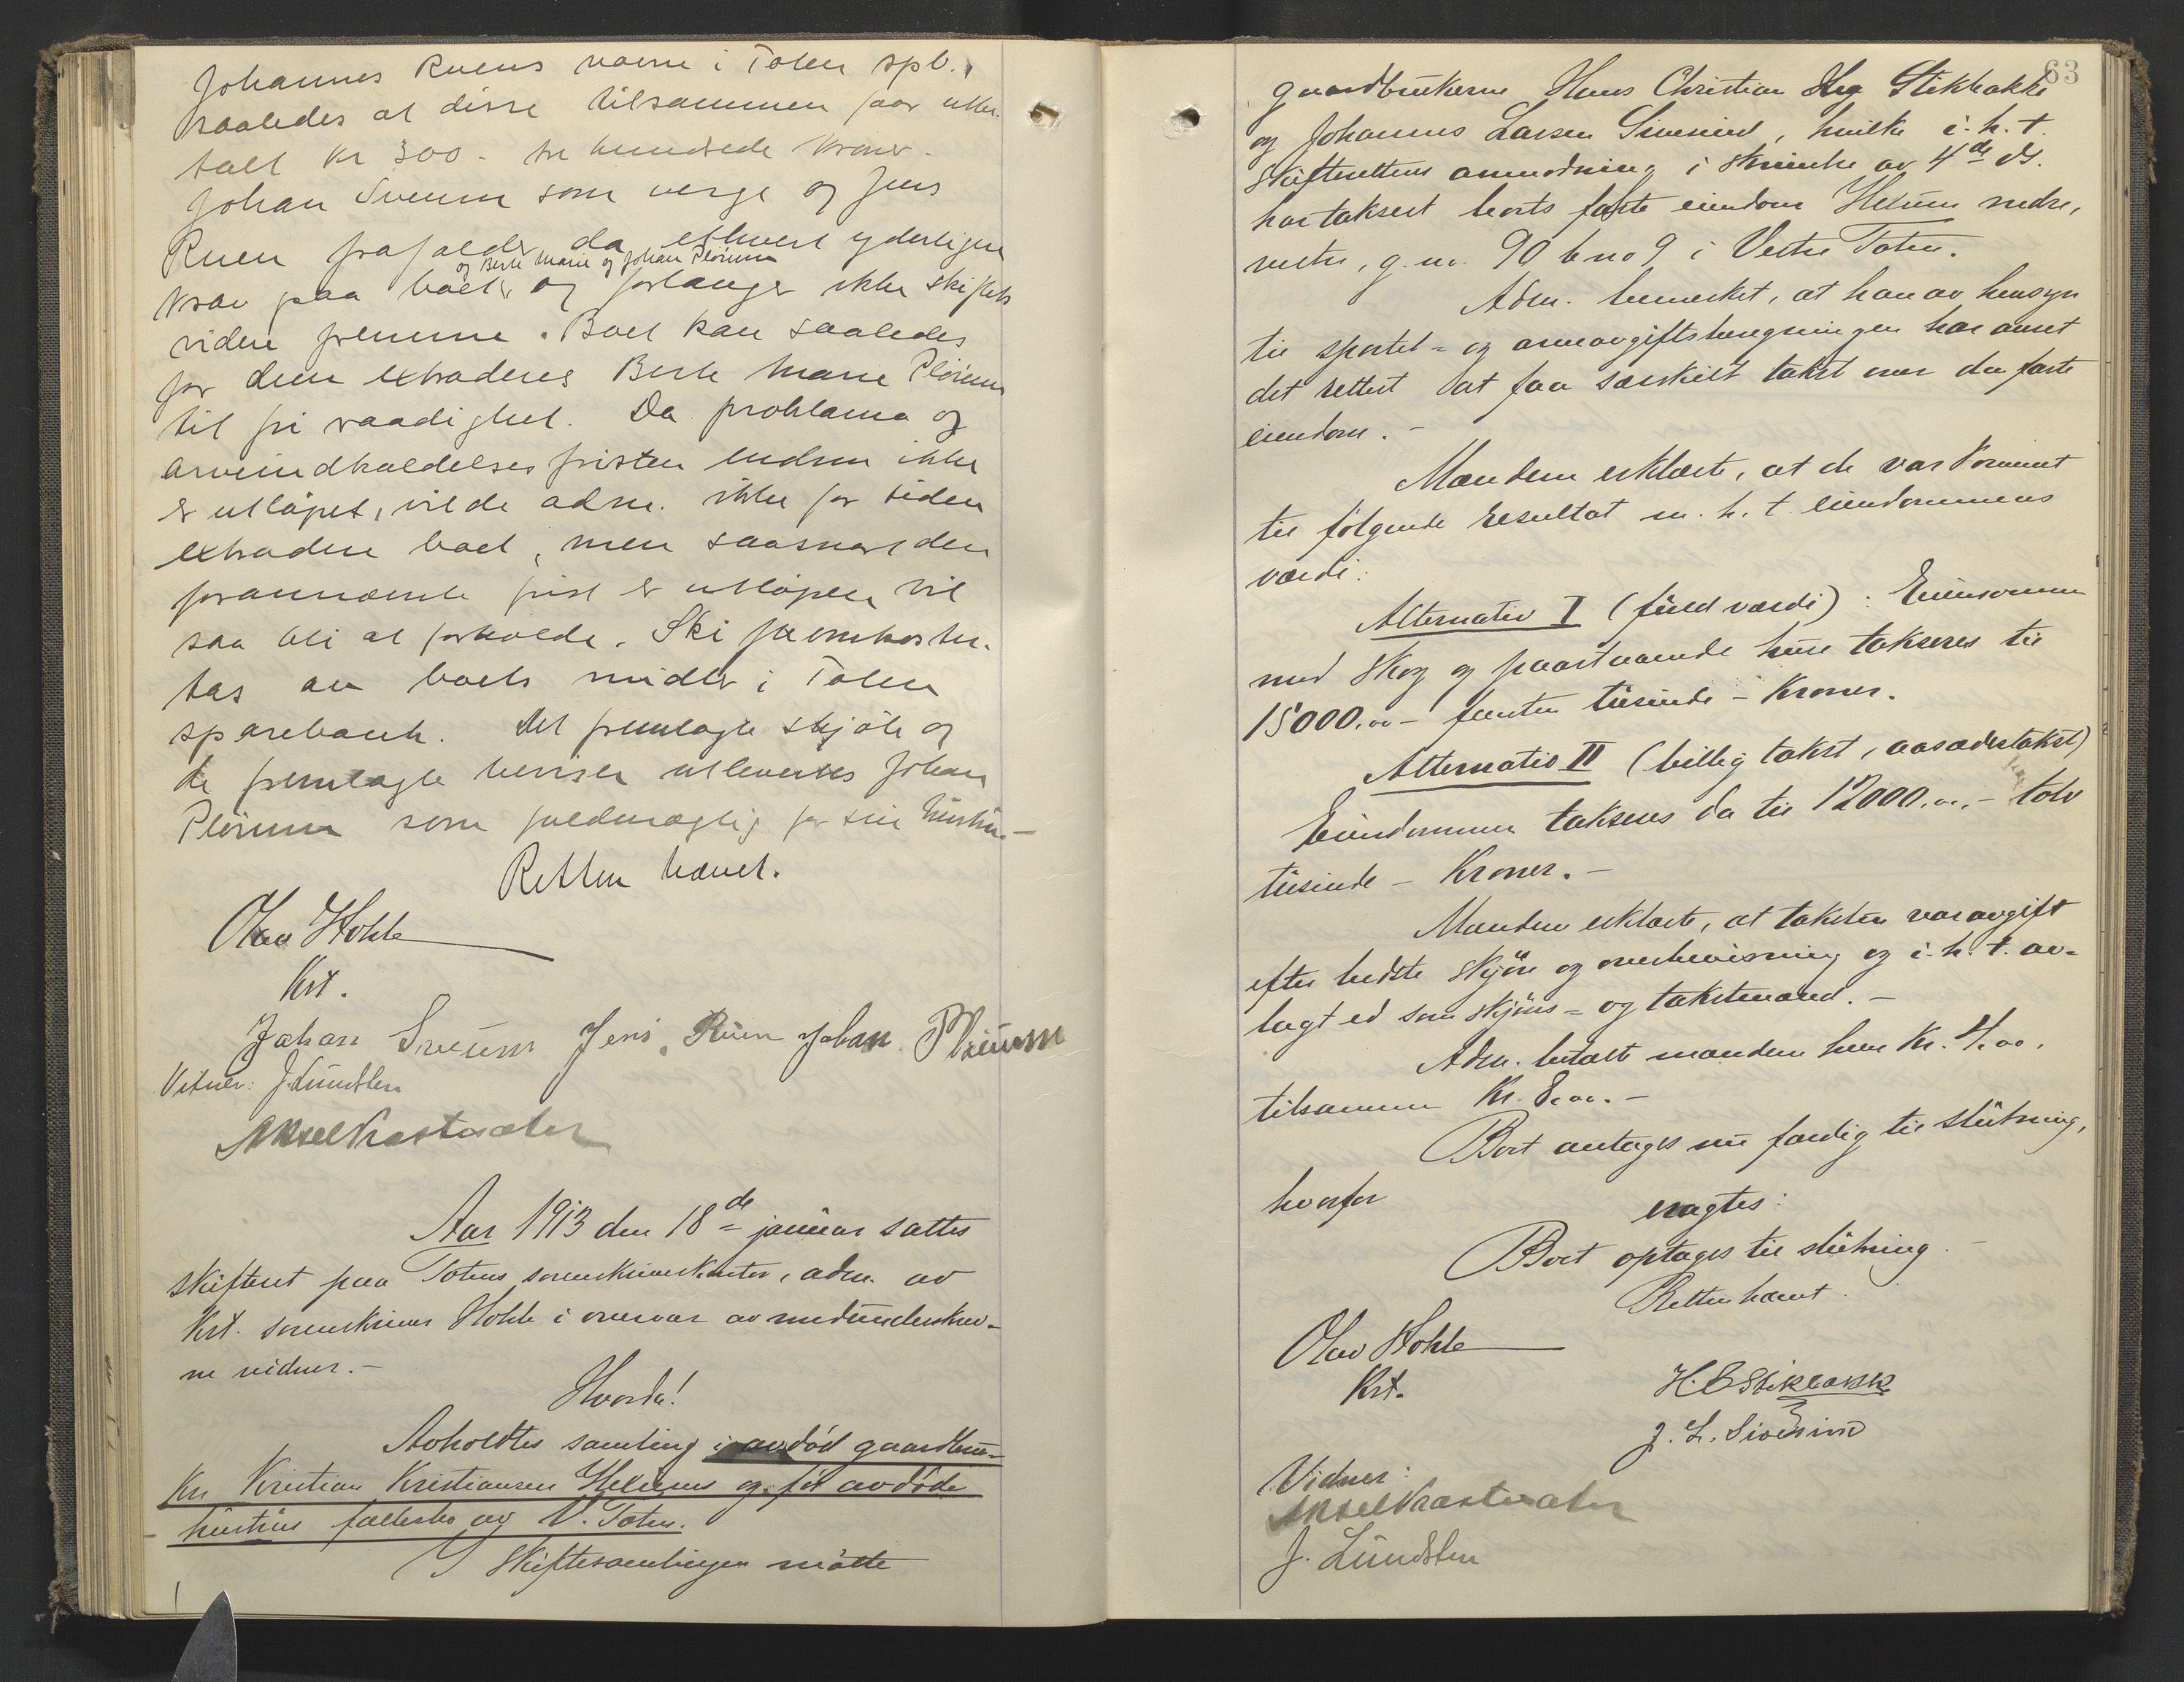 Johannes Ruens navn i Toten spb.,
saaledes at disse tilsammen faar utbe-
talt kr 300.- tre hundrede kroner.
Johan Sveum som verge og Jens
Ruen frafalder da ethvert yderligere
og Berte Marie og Johan Pløium
krav paa boet og forlanger ikke skiftets
videre fremme. Boet kan saaledes
for dem extraderes Berte Marie Pløium
til fri raadighet. Da proklama og
arveindkaldelsesfristen endnu ikke
er utløpet, vilde adm. ikke for tiden
extradere boet, men saasnart den
forannævnte frist er utløpen vil
saa bli at forholde. Skifteomkostn.
tas av boets midler i Toten
sparebank. Det fremlagte skjøte og
de fremlagte beviser utleveres Johan
Pløium som fuldmægtig for sin hustru.-
Retten hævet.
Olav Hohle
Kst.
Johan Sveum Jens Ruen Johan Pløium
Vidner: J. Lundsten
Aksel Krastveäter
Aar 1913 den 18de januar sattes
skifteret paa Totens sorenskriverkontor, adm. av
kst. sorenskriver Hohle i overvær av medunderskrev-
ne vidner.-
Hvorda!
Avholdtes samling i avdød gaardbru-
ker Kristian Kristiansen Hexums og før avdøde
hustrus fællesbo av V. Toten.
I skiftesamlingen møtte
63
gaardbrukerne Hans Christian Stikbakke
og Johannes Larsen Sivesind, hvilke i.h.t.
skifterettens anmodning i skrivelse av 4de ds.
har taksert boets faste eiendom Hexum nedre,
vestre, g.no. 90 b.no 9 i Vestre Toten.
Adm. bemerket, at han av hensyn
til sportel- og arveavgiftsberegningen har anset
det rettest at faa særskilt takst over den faste
eiendom.-
Mændene erklærte, at de var kommet
til følgende resultat m.h.t. eiendommens
værdi:
Alternativ I (fuld værdi): Eiendommen
med skog og paastaaende huse takseres til
15000.00 - femten tusinde - kroner.
Alternativ II (billig takst, aasædestakst)
Eiendommen takseres da til 12000.00.- tolv
tusinde - kroner.-
Mændene erklærte, at taksten var avgit
efter bedste skjøn og overbevisning og i.h.t. av-
lagt ed som skjøns- og takstmænd.-
Adm. betalte mændene hver kr. 4.00.
tilsammen kr. 8.00.-
Boet antages nu færdig til slutning,
hvorfor
eragtes:
Boet optages til slutning.-
Retten hævet.
Olav Hohle
Kst.
H. C Stikbakk
J. L. Sivesind
Vidner:
Aksel Krastveäter
J. Lundsten